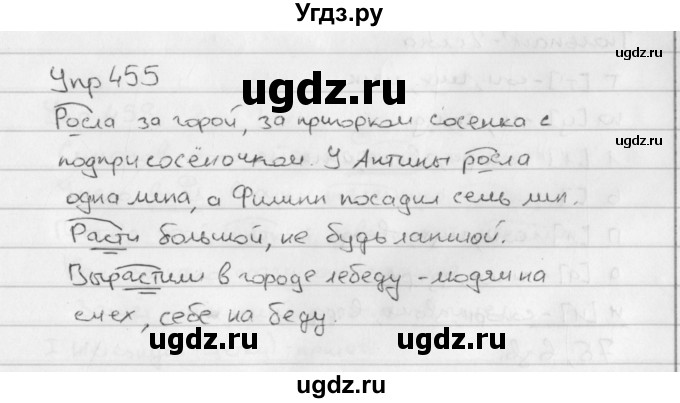 Угдз.ру
ugdz.ru
Упр 455
ugdz.ru
Росла за горой, за пригорком сосенка с
ugdz.ru
подприсосёночком. У Антипы росла
одна липа, а Филипп посадил семь лип.
Расти большой, не будь лапшой.
Вырастили в городе лебеду - людям на
смех, себе на беду.
ugdz.ru ugdz.ru
ugdz.ru